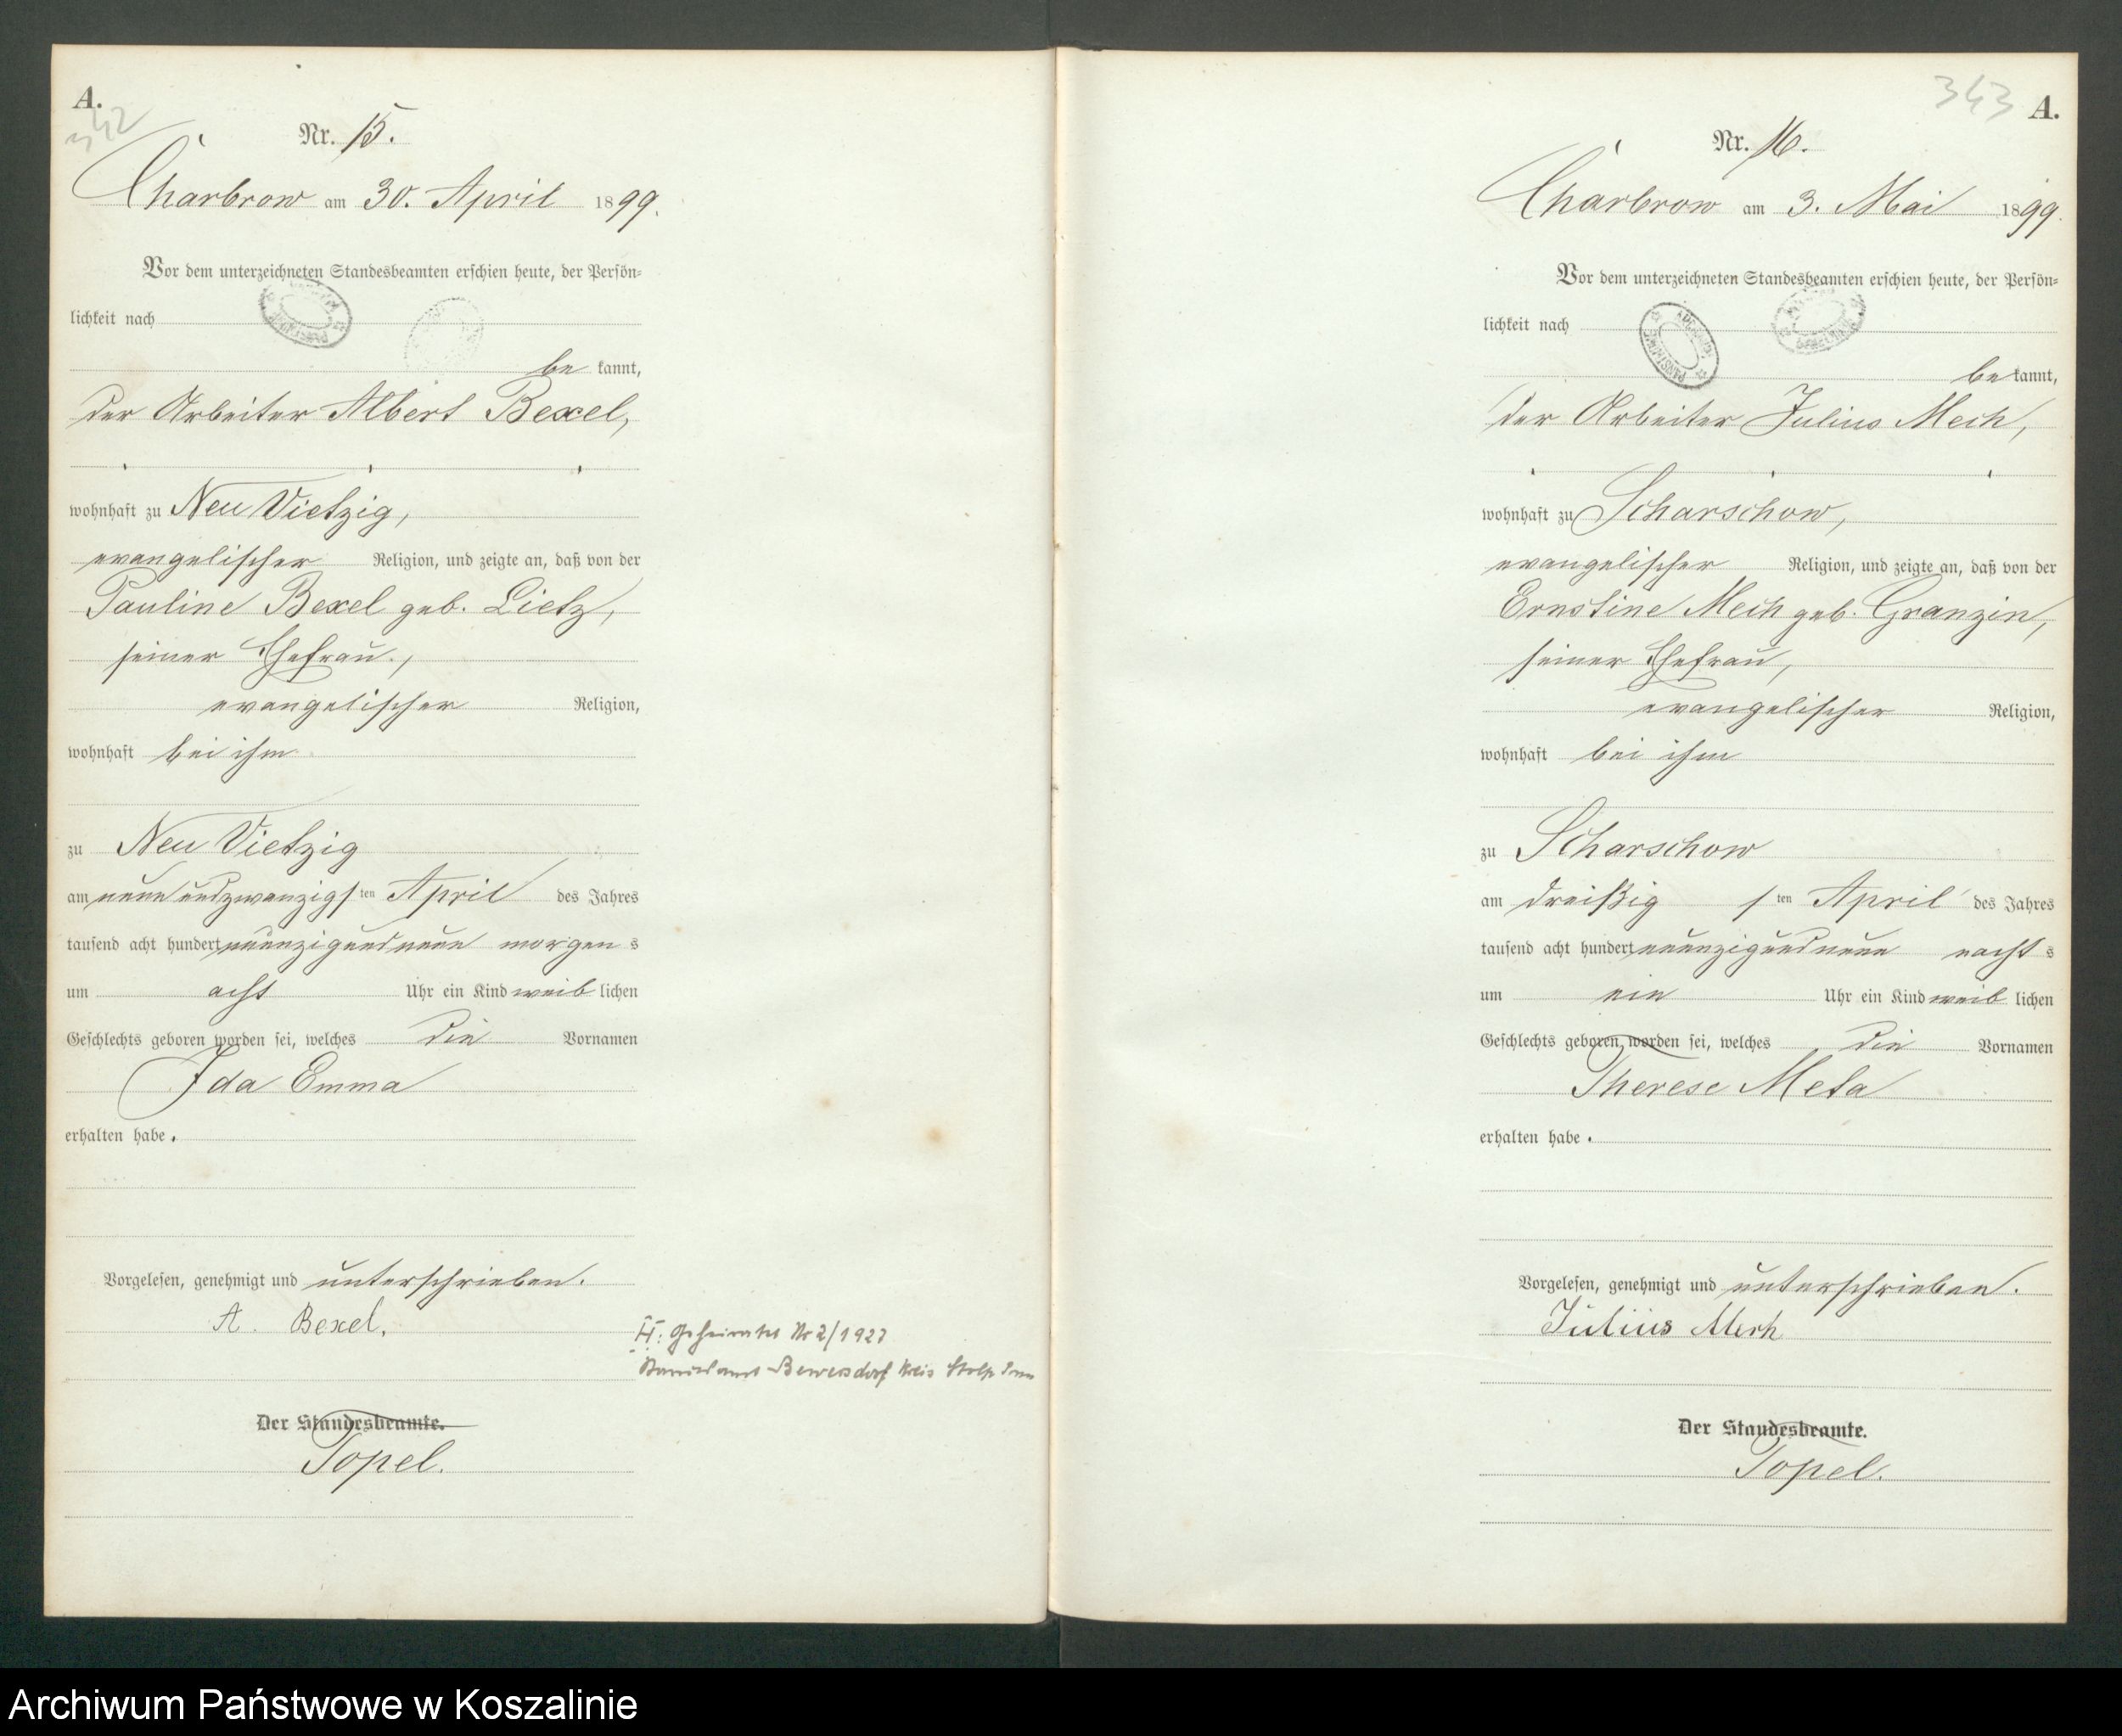 A.
342
Nr. 15.
Charbrow am 30. April 1899.
Vor dem unterzeichneten Standesbeamten erschien heute, der Persön-
lichkeit nach
be kannt,
der Arbeiter Albert Bexel,
wohnhaft zu Neu Vietzig,
evangelischer Religion, und zeigte an, daß von der
Pauline Bexel geb. Lietz,
seiner Ehefrau,
evangelischer Religion,
wohnhaft bei ihm
zu Neu Vietzig
am neunundzwanzigsten April des Jahres
tausend acht hundert neunzigundneun morgens
um acht Uhr ein Kind weiblichen
Geschlechts geboren worden sei, welches die Vornamen
Ida Emma
erhalten habe.
Vorgelesen, genehmigt und unterschrieben.
A. Bexel.
Geheiratet Nr 2/1927
Standesamt Bewersdorf Kreis Stolp
Der Standesbeamte.
Topel.
343
A.
Nr. 16.
Charbrow am 3. Mai 1899.
Vor dem unterzeichneten Standesbeamten erschien heute, der Persön-
lichkeit nach
be kannt,
der Arbeiter Julius Mech,
wohnhaft zu Scharschow,
evangelischer Religion, und zeigte an, daß von der
Ernstine Mech geb. Granzin,
seiner Ehefrau,
evangelischer Religion,
wohnhaft bei ihm
zu Scharschow
am dreißigsten April des Jahres
tausend acht hundert neunzigundneun nachts
um ein Uhr ein Kind weiblichen
Geschlechts geboren worden sei, welches die Vornamen
Therese Meta
erhalten habe.
Vorgelesen, genehmigt und unterschrieben.
Julius Mech
Der Standesbeamte.
Topel.
Archiwum Państwowe w Koszalinie